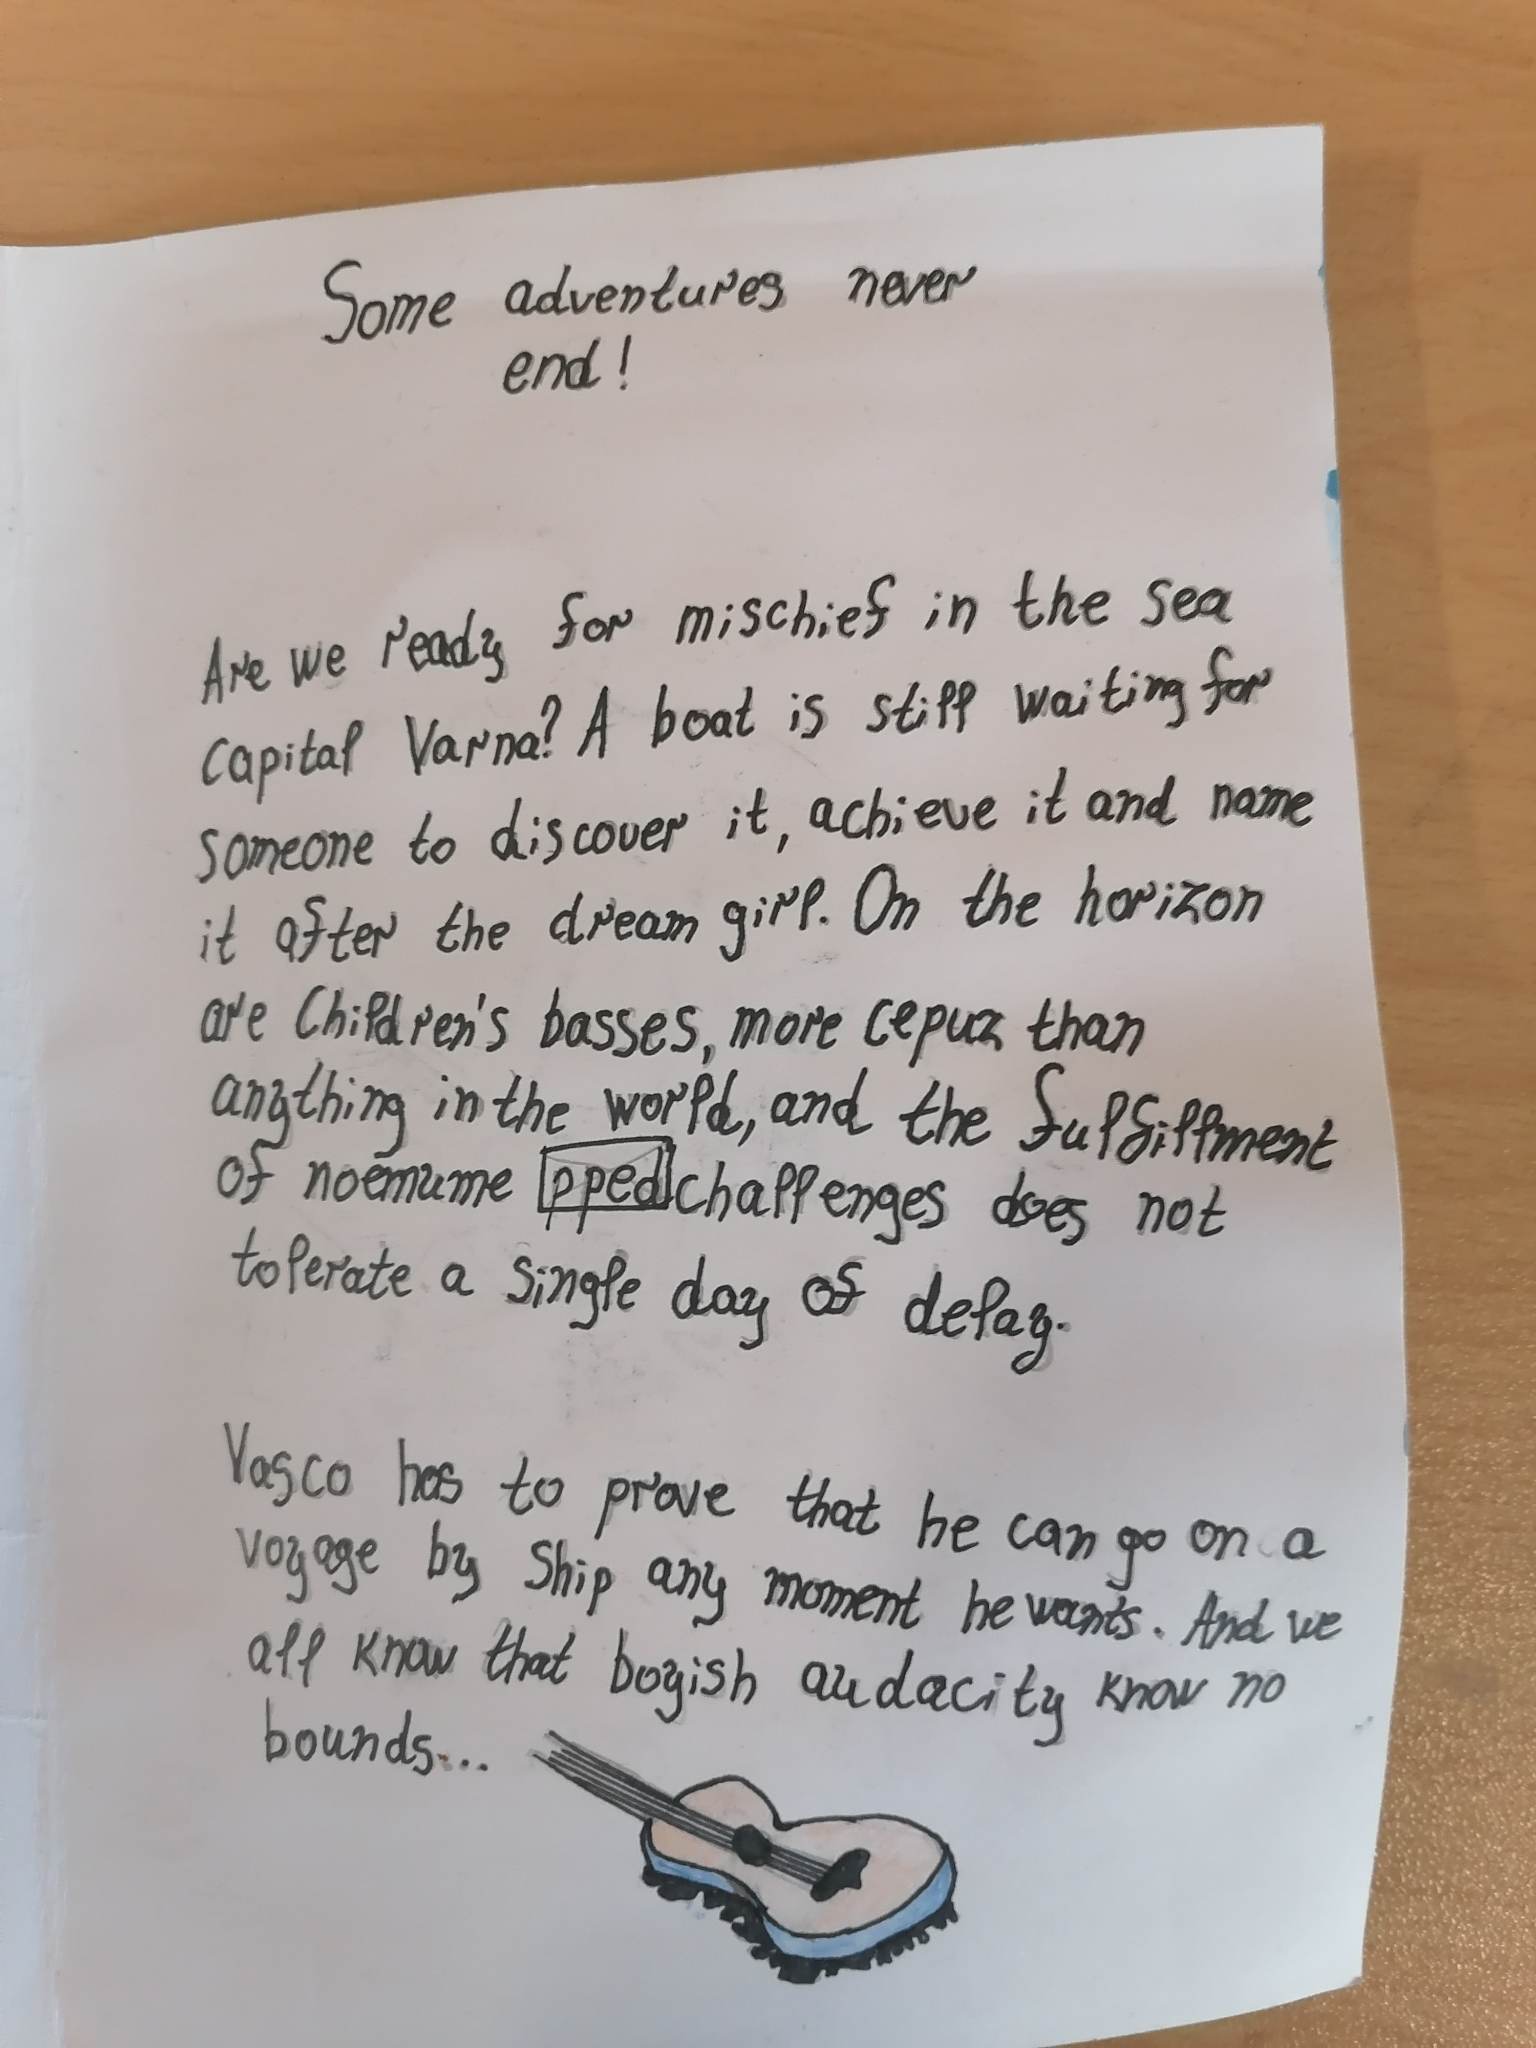 Some adventures never
end!
Are we ready for mischief in the sea
capital Varna? A boat is still waiting for
someone to discover it, achieve it and name
it after the dream girl. On the horizon
are Children's basses, more cepuz than
anything in the world, and the fulfillment
of noemume pped challenges does not
tolerate a single day of delay.
Vasco has to prove that he can go on a
voyage by Ship any moment he wants. And we
all know that boyish audacity know no
bounds...